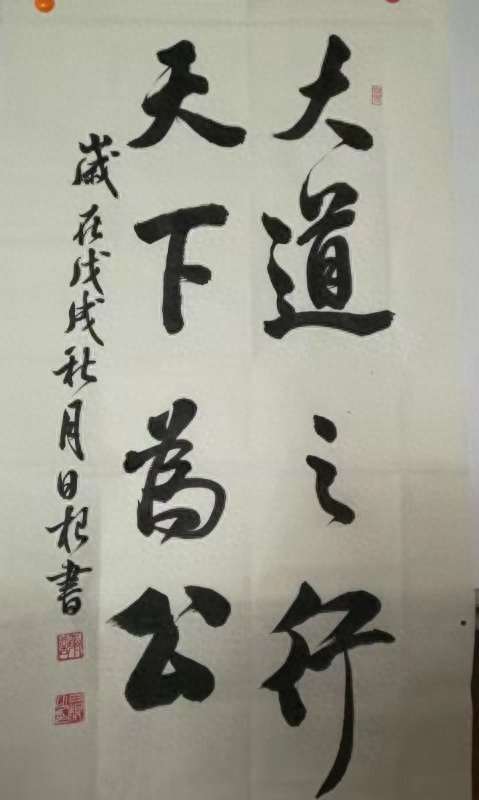 大道之行
天下為公
歲在戊戌秋月日根書